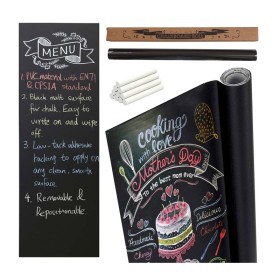 MENU
1. PVC material with EN71
& CPSIA standard
2. Black matt surface
for chalk. Easy to
write on and wipe
off.
3. Low-tack adhesive
backing to apply on
any clean, smooth
surface.
4. Removable &
Repositionable.
Cooking
with love
Mother's Day
to the best mom ever
Handmade
Delicious
Chocolate
Cherry